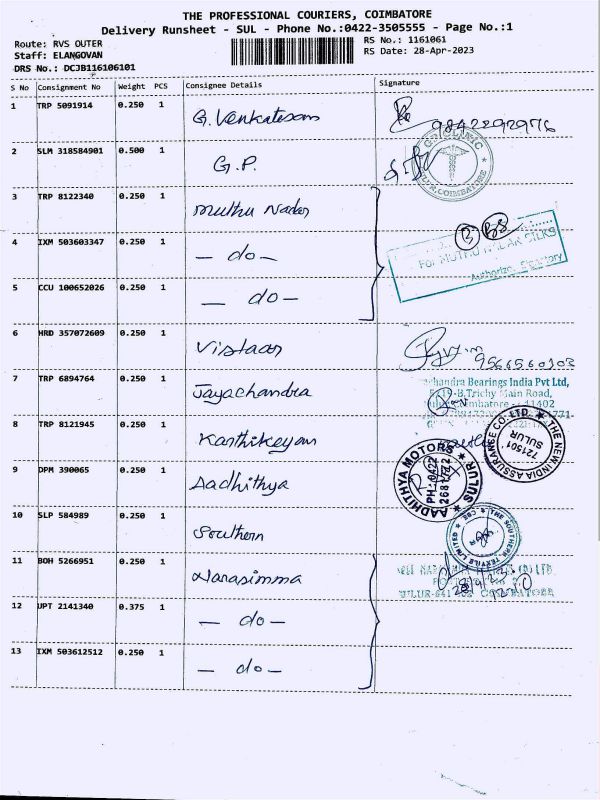 THE PROFESSIONAL COURIERS, COIMBATORE
Delivery Runsheet - SUL - Phone No.:0422-3505555 - Page No.:1
Route: RVS OUTER RS No.: 1161061
Staff: ELANGOVAN RS Date: 28-Apr-2023
DRS No.: DCJB116106101
S No Consignment No Weight PCS Consignee Details Signature
1 TRP 5091914 0.250 1 G. Venkatesan 9842292976
2 SLM 318584901 0.500 1 G.P. CLINIC SULUR, COIMBATORE
3 TRP 8122340 0.250 1 Muthu Nadar
4 IXM 503603347 0.250 1 — do — For MUTHU NADAR SILKS
Authorized Signatory
5 CCU 100652026 0.250 1 — do —
6 HRD 357072609 0.250 1 Vistaas 9566560303
7 TRP 6894764 0.250 1 Jayachandra
chandra Bearings India Pvt Ltd,
Trichy Main Road,
8 TRP 8121945 0.250 1 Karthikeyan
THE NEW INDIA ASSURANCE CO. LTD. 721501 SULUR
9 DPM 390065 0.250 1 Aadhithya
AADHITHYA MOTORS PH:0422 SULUR
10 SLP 584989 0.250 1 Southern
THE SOUTHERN TEXTILE LIMITED
11 BOH 5266951 0.250 1 Narasimma
12 UPT 2141340 0.375 1 — do —
13 IXM 503612512 0.250 1 — do —